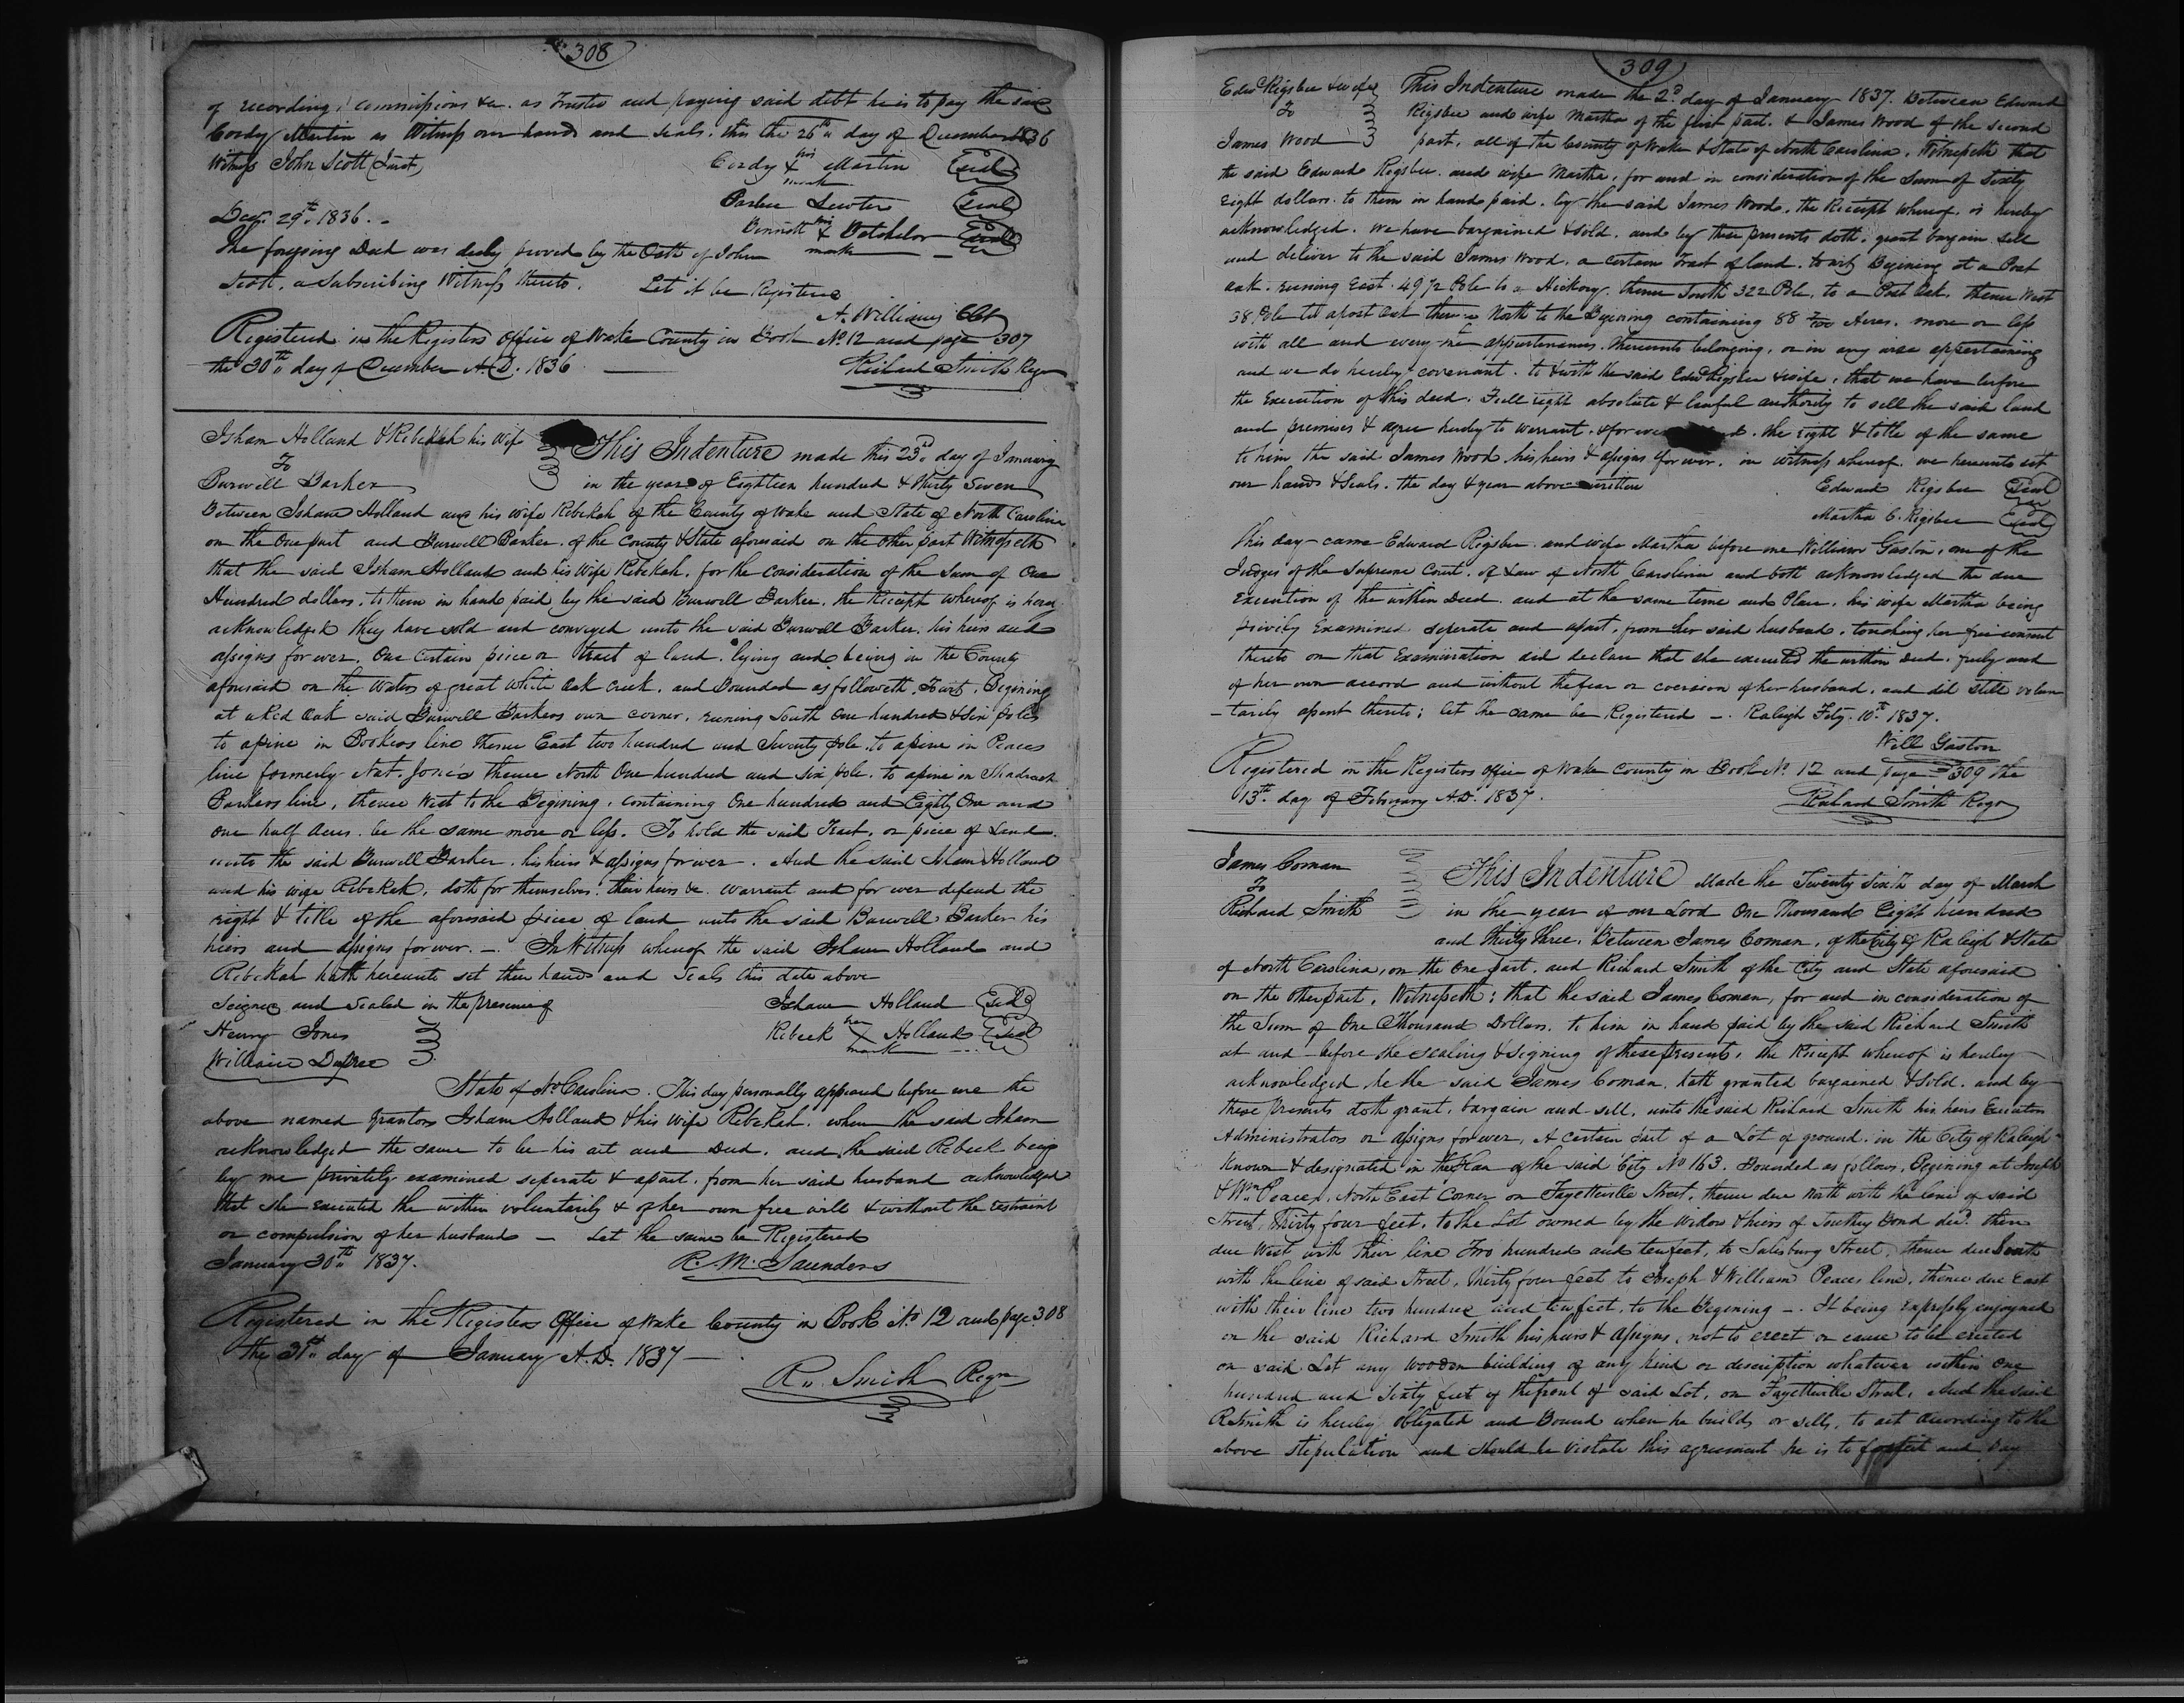 308
of recording, commissions &c. as Trustee and paying said debt he is to pay the said
Cordy Martin as Witness our hands and seals, this the 26th day of December 1836
Witness John Scott (Jurat)
Cordy his X mark Martin (Seal)
Parbee Lewter (Seal)
Bennett his X mark Batchelor (Seal)
Decr. 29th. 1836. -
The forgoing Deed was duly proved by the Oath of John
Scott, a Subscribing Witness thereto. Let it be Registered
A. Williams Clk
Registered in the Registers Office of Wake County in Book No. 12 and page 307
the 30th day of December A.D. 1836
Richard Smith Regr
Isham Holland & Rebekah his Wife
To
Burwell Barker
This Indenture made this 23d. day of January
in the year of Eighteen hundred & thirty Seven
Between Isham Holland and his wife Rebekah of the County of Wake and State of North Carolina
on the One part and Burwell Barker, of the County & State aforesaid on the other part Witnesseth
that the said Isham Holland and his Wife Rebekah, for the consideration of the Sum of One
Hundred dollars, to them in hand paid by the said Burwell Barker, the Receipt whereof is here
acknowledged they have sold and conveyed unto the said Burwell Barker, his heirs and
assigns for ever. One certain piece or tract of land, lying and being in the County
aforesaid on the Waters of great white Oak Creek, and Bounded as followeth, Towit, Begining
at a Red Oak said Burwell Barkers own corner, runing South One hundred & Six poles
to a pine in Bookers line Thence East two hundred and Seventy pole, to a pine in Peaces
line formerly Nat. Jones thence North One hundred and six pole, to a pine in Shadrach
Barkers line, thence West to the Begining, containing One hundred and Eighty One and
One half Acres be the same more or less. To hold the said Tract, or piece of Land
unto the said Burwell Barker, his heirs & assigns for ever. And the said Isham Holland
and his wife Rebekah, doth for themselves, their heirs &c. Warrant and for ever defend the
right & title of the aforesaid piece of land unto the said Burwell Barker his
heirs and assigns forever. - In Witness whereof the said Isham Holland and
Rebekah hath hereunto set their hand and Seals this date above
Seigned and Sealed in the presence of
Isham Holland (Seal)
Henry Jones
Rebeck her X mark Holland (Seal)
William Dupree
State of No. Carolina. This day personally appeared before me the
above named grantors Isham Holland & his Wife Rebekah, when the said Isham
acknowledged the same to be his act and Deed, and the said Rebeck being
by me privately examined seperate & apart, from her said husband acknowledged
that she executed the within voluntarily & of her own free will & without the restraint
or compulsion of her husband - Let the same be Registered
January 30th 1837.
R. M. Saunders
Registered in the Registers Office of Wake County in Book No 12 and page 308
the 31st day of January A.D. 1837
R. Smith Regr
309
Edwd Rigsbee & wife
To
James Wood
This Indenture made the 2d. day of January 1837. Between Edward
Rigsbee and wife Martha of the first part. & James Wood of the second
part, all of the County of Wake & State of North Carolina. Witnesseth that
the said Edward Rigsbee and wife Martha, for and in consideration of the Sum of Sixty
eight dollars to them in hand paid by the said James Wood, the Receipt whereof is hereby
acknowledged. We have bargained & sold, and by these presents doth, grant bargain sell
and deliver to the said James Wood, a certain Tract of land, to wit, Begining at a Post
oak, runing East 49 1/2 Pole to a Hickory, thence South 322 Pole, to a Post Oak, thence West
38 Pole to a post Oak thence North to the Begining containing 88 Acres, more or less
with all and every the appurtenances thereunto belonging, or in any wise appertaining
and we do hereby covenant to & with the said Edwd Rigsbee & wife, that we have before
the Execution of this deed, Full right absolute & lawful authority to sell the said land
and premises & agree hereby to warrant & forever the right & title of the same
to him the said James Wood his heirs & assigns forever, in witness whereof we hereunto set
our hands & Seals, the day & year above written
Edward Rigsbee (Seal)
Martha C. Rigsbee (Seal)
This day came Edward Rigsbee and wife Martha before me William Gaston, one of the
Judges of the Supreme Court, of Law of North Carolina and both acknowledged the due
Execution of the within Deed and at the same time and Place, his wife Martha being
privily Examined seperate and apart, from her said husband, touching her free consent
thereto on that Examination did declare that she executed the within Deed, freely and
of her own accord and without the fear or coercion of her husband, and did still volun
-tarily assent thereto; let the same be Registered -. Raleigh Feby. 10th 1837.
Will Gaston
Registered in the Registers Office of Wake County in Book No. 12 and page 309 the
13th. day of February A.D. 1837.
Richard Smith Regr
James Coman
To
Richard Smith
This Indenture Made the Twenty Sixth day of March
in the year of our Lord One Thousand Eight hundred
and Thirty Three, Between James Coman, of the City of Raleigh & State
of North Carolina, on the One part, and Richard Smith of the City and State aforesaid
on the Other part, Witnesseth; that the said James Coman, for and in consideration of
the Sum of One Thousand Dollars, to him in hand paid by the said Richard Smith
at and before the sealing & signing of these presents, the Receipt whereof is hereby
acknowledged he the said James Coman, hath granted bargained & sold, and by
these presents doth grant, bargain and sell, unto the said Richard Smith his heirs Executors
Administrators or assigns forever, A certain part of a Lot of ground in the City of Raleigh
Known & designated in the Plan of the said City No 163. Bounded as follows, Begining at Joseph
& Wm Peaces, North East Corner on Fayetteville Street, thence due North with the line of said
Street, Thirty four feet, to the Lot owned by the Widow & heirs of Southey Bond decd. then
due West with their line Two hundred and ten feet, to Salisbury Street, thence due South
with the line of said Street, thirty four feet to Joseph & William Peaces line, thence due East
with their line two hundred and ten feet, to the Begining -. It being expressly enjoyned
on the said Richard Smith his heirs & assigns, not to erect or cause to be erected
on said Lot any wooden building of any kind or description whatever within One
hundred and Sixty feet of the front of said Lot, on Fayetteville Street. And the said
R Smith is hereby obligated and Bound when he builds or sells, to act according to the
above stipulation and should he violate this agreement he is to forfeit and pay